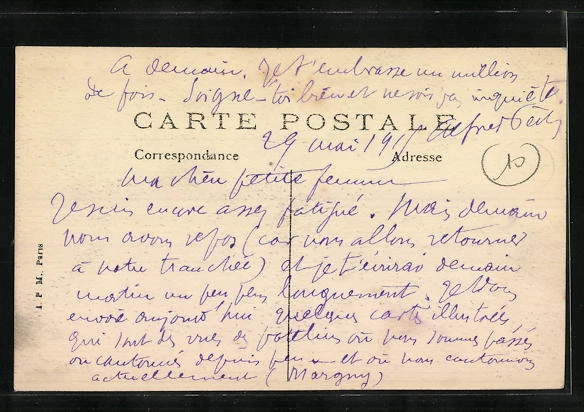 A demain. Je t'embrasse un million
de fois. Soigne-toi bien et ne sois pas inquiète.
CARTE POSTALE
Alfred
29 mai 191
Correspondance
Adresse
Ma chère petite femme
Je suis encore assez fatigué. Mais demain
nous avons repos (car nous allons retourner
à notre tranchée) et je t'écrirai demain
matin un peu plus longuement. Je
envoie aujourd'hui quelques cartes illustrées
qui sont des vues de où nous sommes passés
ou cantonnés depuis peu et où nous cantonnons
actuellement (Margny)
A. P. M. Paris